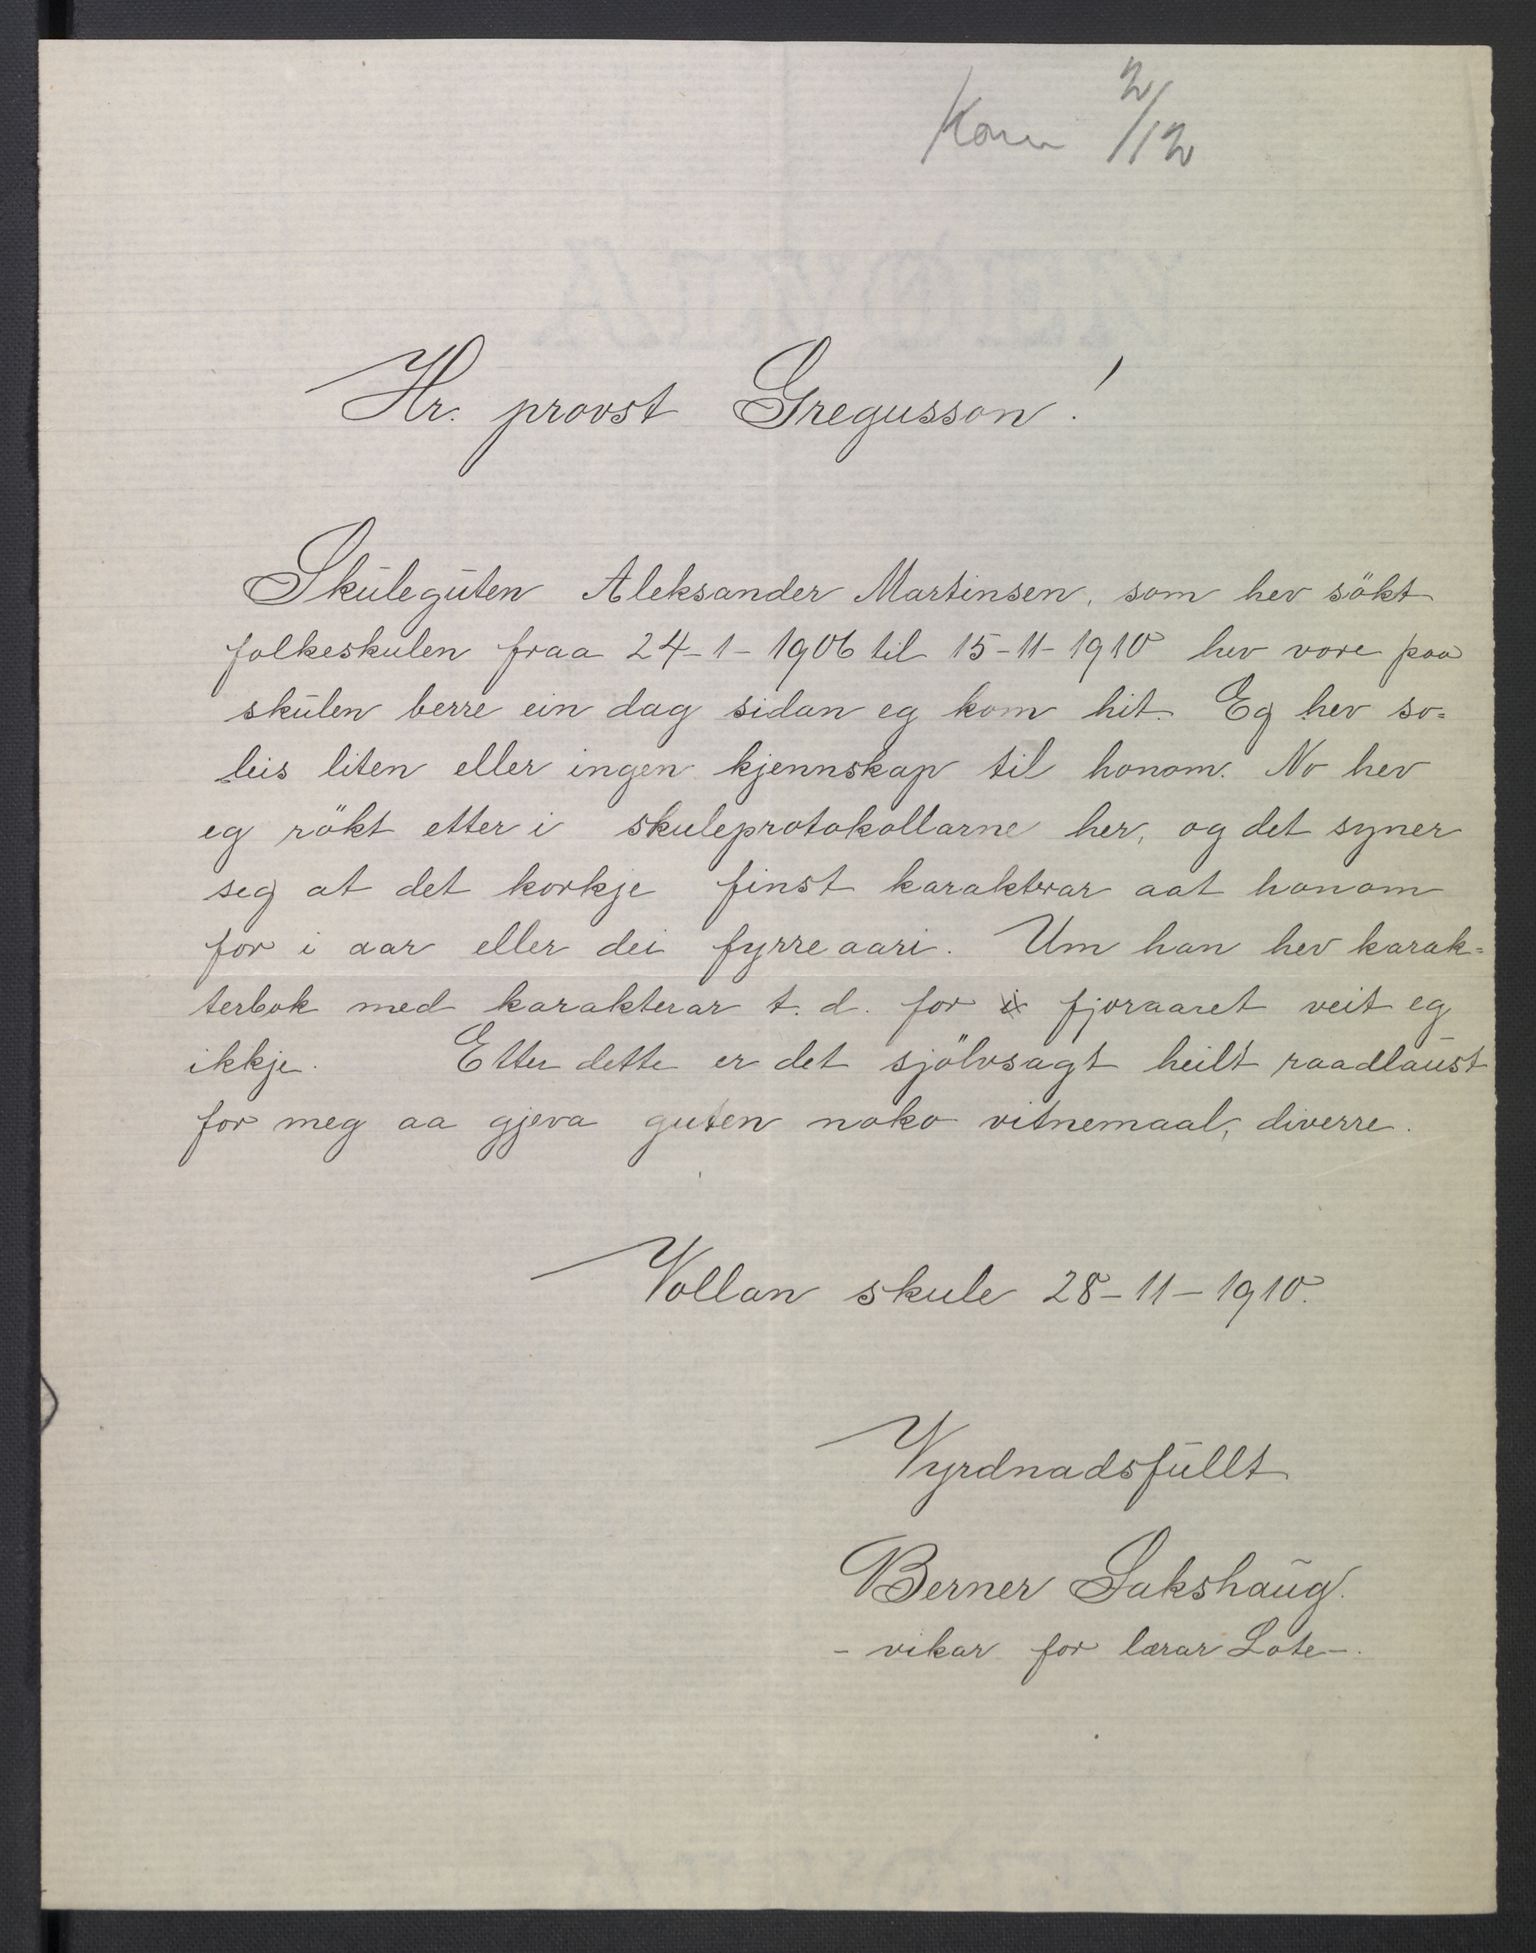 Kom 2/12
Hr. provst Gregusson!
Skuleguten Aleksander Martinsen, som hev sökt
folkeskulen fraa 24-1-1906 til 15-11-1910 hev vore paa
skulen berre ein dag sidan eg kom hit. Eg hev so=
leis liten eller ingen kjennskap til honom. No hev
eg rökt etter i skuleprotokollarne her, og det syner
seg at det korkje finst karakterar aat honom
for i aar eller dei fyrre aari. Um han hev karak=
terbok med karakterar t. d. for fjoraaret veit eg
ikkje. Etter dette er det sjölvsagt heilt raadlaust
for meg aa gjeva guten noko vitnemaal, diverre.
Vollan skule 28-11-1910.
Vyrdnadsfullt
Berner Sakshaug.
- vikar for lærar Lote -.